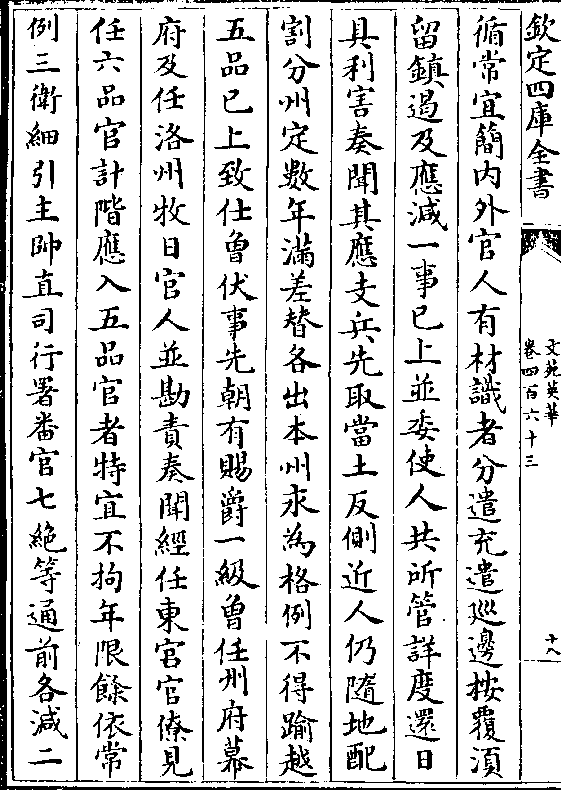 欽定四庫全書
文苑英華
卷四百六十三
十八
循常宜簡内外官人有材識者分遣充遣巡邊按覆湏
留鎮遏及應減一事已上並委使人共所管詳度還日
具利害奏聞其應支兵先取當土反側近人仍隨地配
割分州定數年滿差替各出本州永為格例不得踰越
五品已上致仕曽伏事先朝有賜爵一級曽任州府幕
府及任洛州牧日官人並勘責奏聞經任東宫官僚見
任六品官計階應入五品官者特宜不拘年限餘依常
例三衛細引主帥直司行署畨官七絶等通前各減二